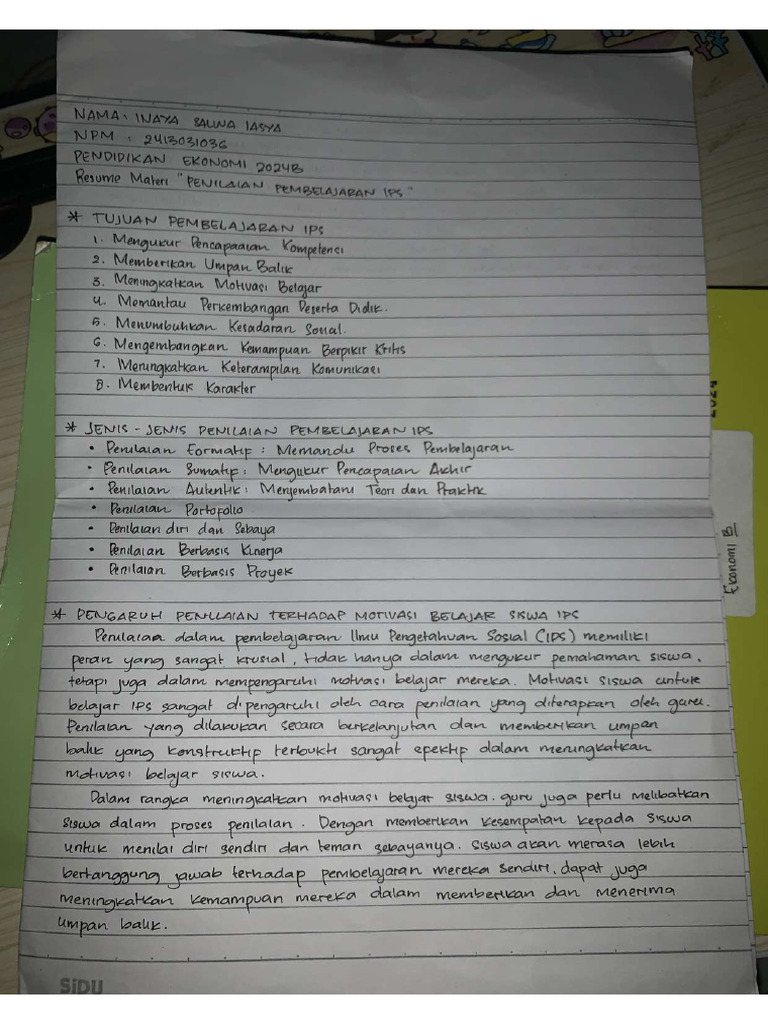 NAMA : INAYA SALINA IASYA
NPM : 2413031036
PENDIDIKAN EKONOMI 2024B
Resume Materi "PENILAIAN PEMBELAJARAN IPS"
* TUJUAN PEMBELAJARAN IPS
1. Mengukur Pencapaaian Kompetensi
2. Memberikan Umpan Balik
3. Meningkatkan Motivasi Belajar
4. Memantau Perkembangan Peserta Didik.
5. Menumbuhkan Kesadaran Sosial.
6. Mengembangkan Kemampuan Berpikir Kritis
7. Meningkatkan Keterampilan Komunikasi
8. Membentuk Karakter
* JENIS - JENIS PENILAIAN PEMBELAJARAN IPS
• Penilaian Formatif : Memandu Proses Pembelajaran
• Penilaian Sumatif : Mengukur Pencapaian Akhir
• Penilaian Autentik : Menjembatani Teori dan Praktik
• Penilaian Portofolio
• Penilaian diri dan Sebaya
• Penilaian Berbasis Kinerja
• Penilaian Berbasis Proyek
* PENGARUH PENILAIAN TERHADAP MOTIVASI BELAJAR SISWA IPS
Penilaian dalam pembelajaran Ilmu Pengetahuan Sosial (IPS) memiliki
peran yang sangat krusial, tidak hanya dalam mengukur pemahaman siswa,
tetapi juga dalam mempengaruhi motivasi belajar mereka. Motivasi siswa untuk
belajar IPS sangat dipengaruhi oleh cara penilaian yang diterapkan oleh guru.
Penilaian yang dilakukan secara berkelanjutan dan memberikan umpan
balik yang konstruktif terbukti sangat efektif dalam meningkatkan
motivasi belajar siswa.
Dalam rangka meningkatkan motivasi belajar siswa. guru juga perlu melibatkan
siswa dalam proses penilaian. Dengan memberikan kesempatan kepada siswa
untuk menilai diri sendiri dan teman sebayanya. siswa akan merasa lebih
bertanggung jawab terhadap pembelajaran mereka sendiri, dapat juga
meningkatkan kemampuan mereka dalam memberikan dan menerima
umpan balik.
SiDU
2024
Ekonomi B